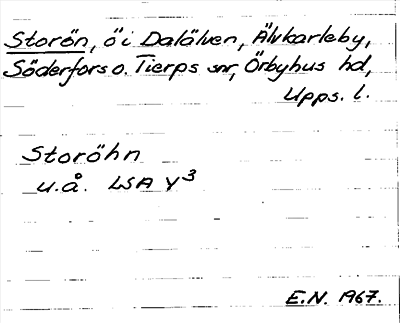 Storön, ö i Dalälven, Älvkarleby,
Söderfors o. Tierps snr, Örbyhus hd,
Upps. l.
Storöhn
u.å. LSA Y³
E.N. 1967.